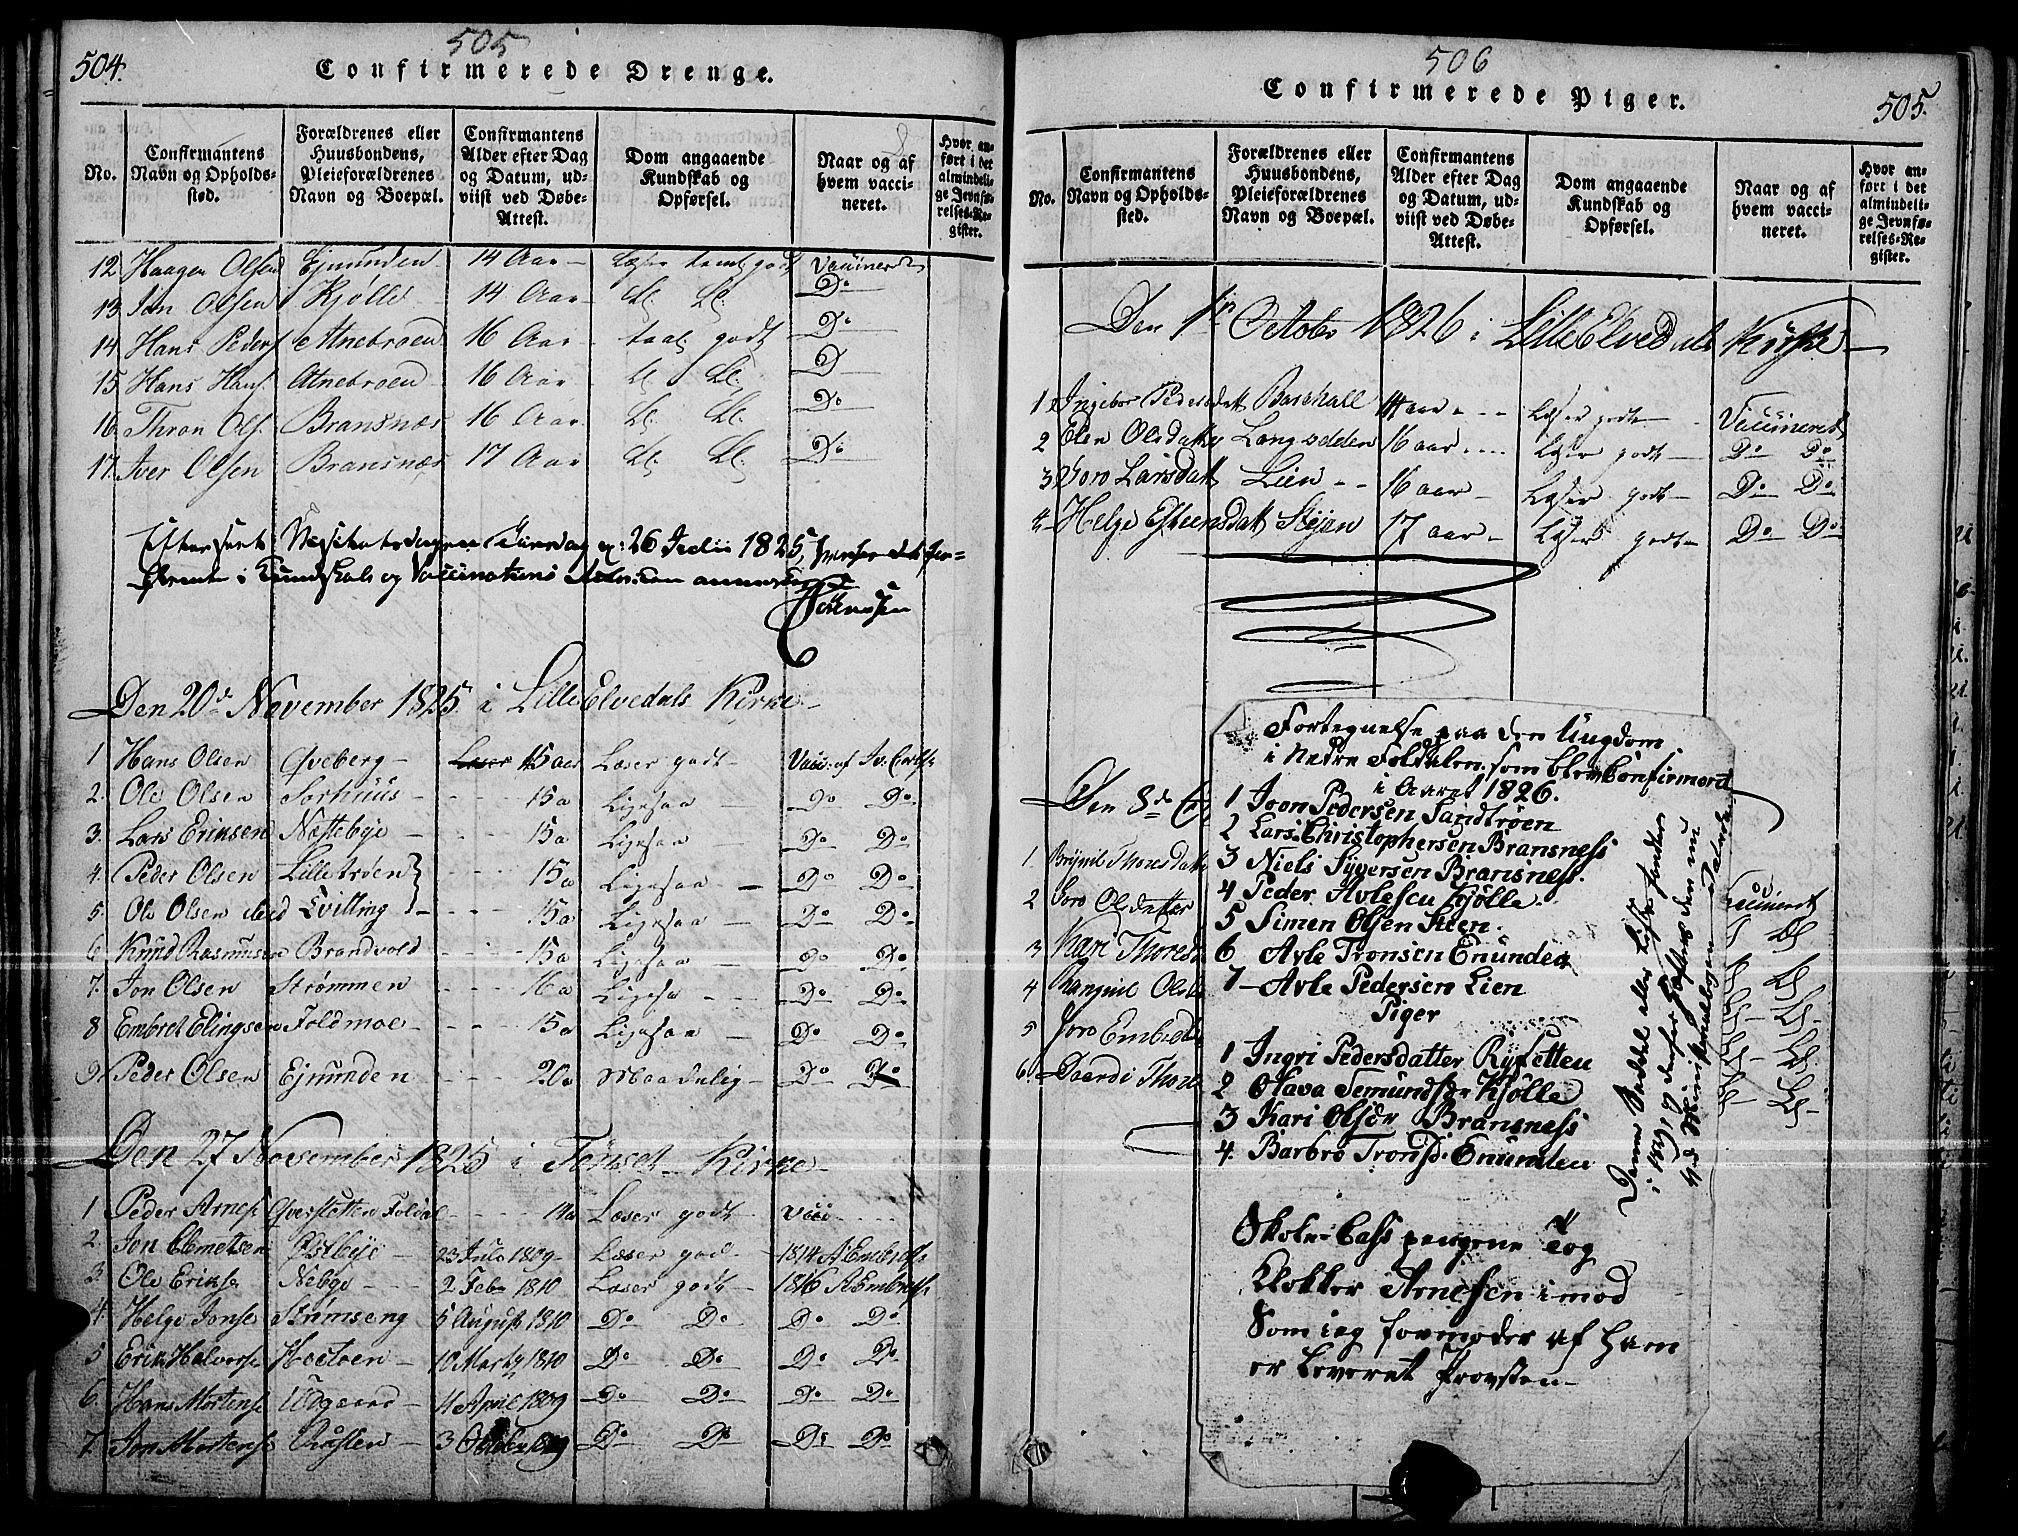 504.
505
Confirmerede Drenge.
No.
Confirmantens Navn og Opholds-sted.
Forældrenes eller Huusbondens, Pleieforældrenes Navn og Boepæl.
Confirmantens Alder efter Dag og Datum, ud-viist ved Døbe-Attest.
Dom angaaende Kundskab og Opførsel.
Naar og af hvem vacci-neret.
Hvor an-ført i det almindeli-ge Jevnfø-relses-Re-gister.
12 Haagen Olsen Ejnunden 14 Aar Læser temt godt Vaccineret
13 Jon Olsen Kjølle 14 Aar dl. dl. Do
14 Hans Peders Atnebroen 16 Aar taal. godt Do
15 Hans Hans. Atnebroen 16 Aar dl. dl. D
16 Thron Ols. Bransnæs 16 Aar dl. dl. Do
17. Iver Olsen Bransnæs 17 Aar dl. dl. Do
Efterseet Visitatsdagen Tirsdag 26 Julii 1825,
i Kundskab og Vaccinations
Den 20de November 1825 i Lille Elvedals Kirke
1 Hans Olsen Qveberg 15 aar Læser godt Vacc. af
2. Ole Olsen Sørhuus 15a Ligesaa Do Do
3. Lars Eriksen Nættebye 15a Ligesaa Do Do
4. Peder Olsen Lilletrøen 15a Ligesaa Do Do
5. Ole Olsen 15a Ligesaa Do Do
6 Knud Rasmusen Brandvold 15a Ligesaa Do Do
7. Jon Olsen Strømmen 16a Ligesaa Do Do
8 Embret Elingsen Foldmoe 15a Ligesaa Do Do
9. Peder Olsen Ejnunden 20a Maadelig Do Do
Den 27 November 1825 i Tønset Kirke
1 Peder Arnes 14a Læser godt Vacc
2. Jon Clemetsen Østbye 23 Julo 1809 Læser godt 1814 A Embrets
3. Ole Eriks Nebye 2 Feb 1810 Læser godt 1816 A Embrets
4. Helge Jonse Strømseng 5 August 1810 Do Do Do Do
5 Erik Halvorse 10 Marty 1810 Do Do Do Do
6. Hans Mortense Udgaard 4 April 1809 Do Do Do Do
7. Jon Mortense 3 October 1809 Do Do Do Do
506
505.
Confirmerede Piger.
No.
Confirmantens Navn og Opholds-sted.
Forældrenes eller Huusbondens, Pleieforældrenes Navn og Boepæl.
Confirmantens Alder efter Dag og Datum, ud-viist ved Døbe-Attest.
Dom angaaende Kundskab og Opførsel.
Naar og af hvem vacci-neret.
Hvor an-ført i det almindeli-ge Jevnfø-relses-Re-gister.
Den 1te October 1826 i Lille Elvedals Kirke
1 Ingebor Pedersdatt 14 aar Læser godt Vaccineret
2 Elen Olsdatter 16 aar Læser godt Do Do
3 Goro Larsdatt Lien 16 aar Læser godt Do Do
4 Helge Esteensdatt Stejen 17 aar Læser godt Do Do
Den 8de
1. Brynil Thoresdatt Vaccineret
2 Goro Olsdatter
3 Kari Thoresd
4 Rangnil Olsd
5 Goro Embretsd
6. Baardi Thores
Fortegnelse paa den Ungdom
i Nedre Foldalen som blev Confirmerd
i Aaret 1826.
1 Joon Pedersen Sandtrøen
2 Lars Christophersen Bransness
3 Niels Syversen Bransness.
4 Peder Avlesen Kjølle.
5 Simen Olsen Steen.
6 Avle Tronsen Enunden
7 Avle Pedersen Lien
Piger
1 Ingri Pedersdatter Ryfetten
2 Olava Semundsdr Kjølle
3 Kari Olsdr Bransness
4 Barbro Tronsd. Enunden
Denne Seddel eller Liste
i 1827
Skole Cass pengene Tog
Klokker Arnesen imod
Som ieg formoder af ham
er Leveret Provsten